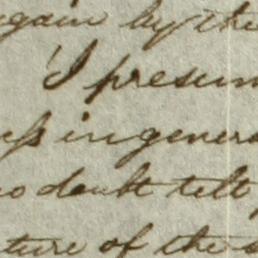 again by the
I presum
in genera
no doubt tell
ture of the s